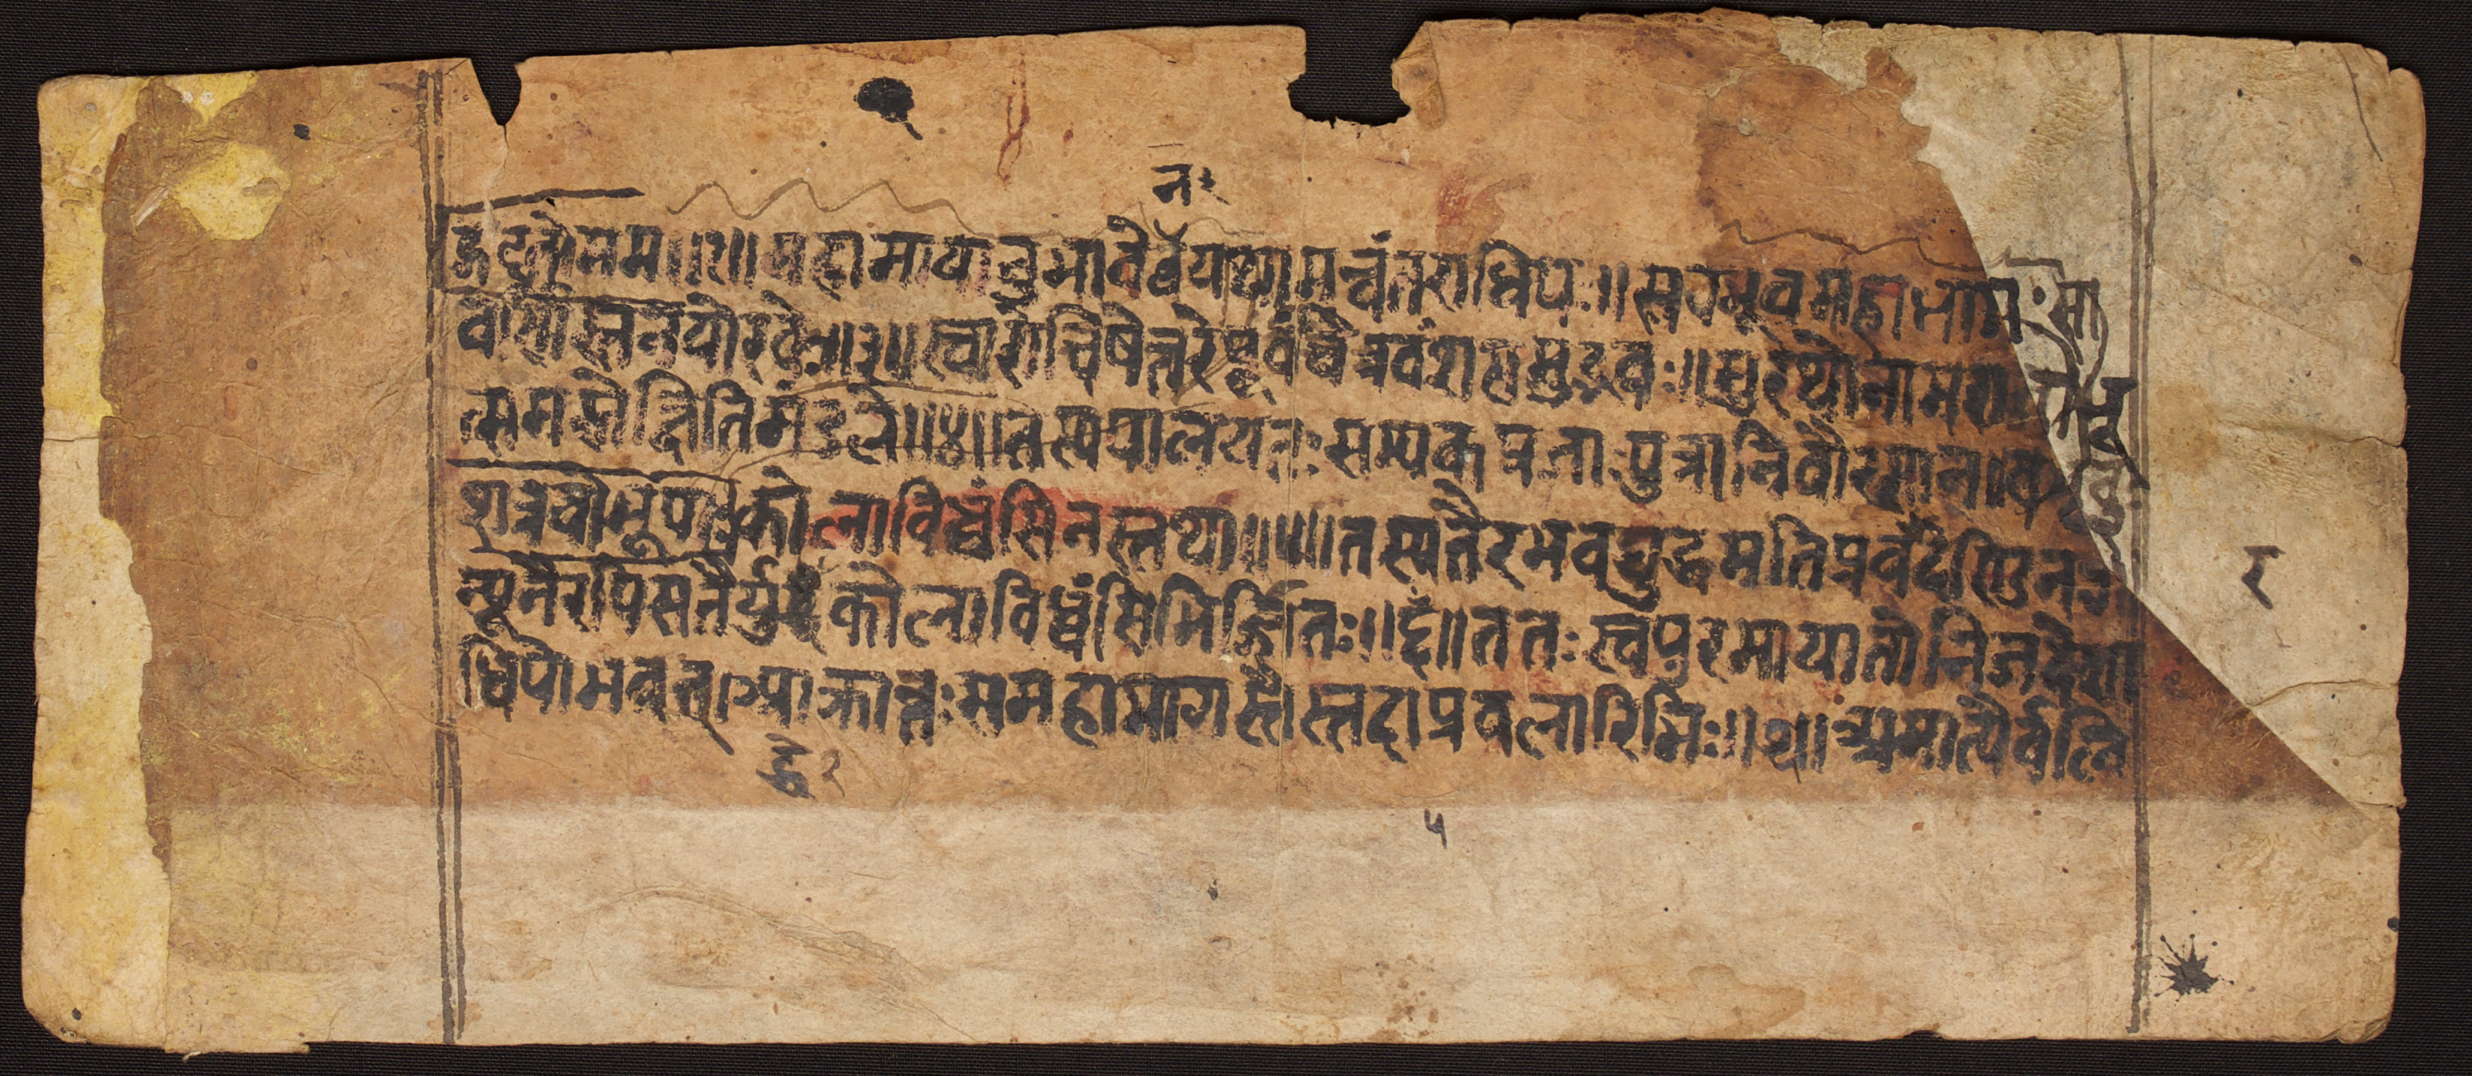 न१
द्गदतो मम॥२॥महामायानुभावेन यथा मन्वंतराधिपः॥स बभूव महाभागः सा
वर्णिस्तनयो रवेः॥३॥स्वारोचिषेन्तरे पूर्वं चैत्रवंशसमुद्भवः॥सुरथो नाम राजाभू
त्समस्तेक्षितिमंडले॥४॥तस्य पालयतः सम्यक् प्रजाः पुत्रानिवौरसान्।बभूवुः
शत्रवो भूपाः कोलाविध्वंसिनस्तथा॥५॥तस्य तैरभवद्युद्धमतिप्रबलदण्डिनः।
न्यूनैरपि स तैर्युद्धे कोलाविध्वंसिभिर्जितः॥६॥ततः स्वपुरमायातो निजदेशा
धिपोभवत्।आक्रान्तः स महाभागस्तैस्तदा प्रबलारिभिः॥७॥अमात्यैर्बलि
द्धे१
५